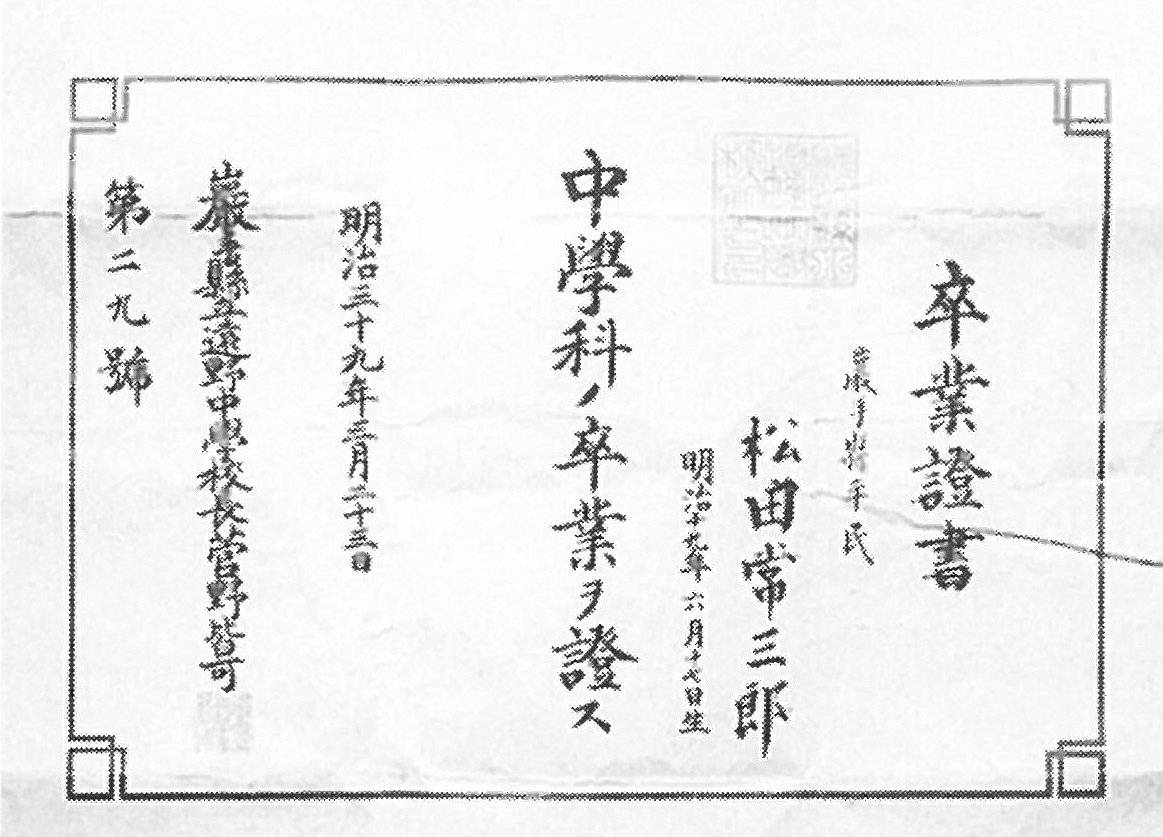 卒業證書
巖手縣平民
松田常三郎
明治十九年六月十七日生
中學科ノ卒業ヲ證ス
明治三十九年三月二十三日
巖手縣立遠野中學校長菅野
第二九號